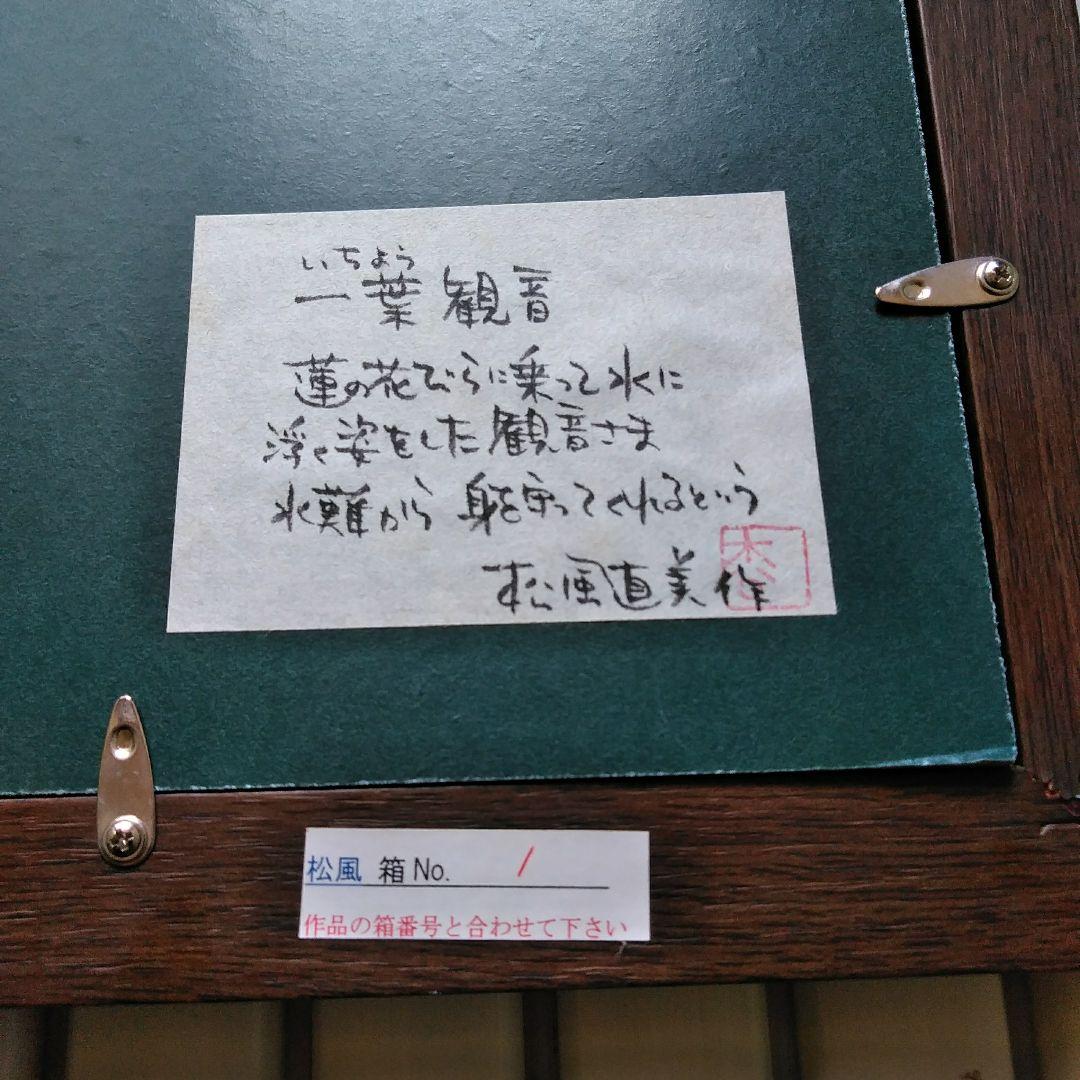 いちよう
一葉観音
蓮の花びらに乗って水に
浮く姿をした観音さま
水難から 身を守ってくれるという
松風直美作
松風 箱No. 1
作品の箱番号と合わせて下さい